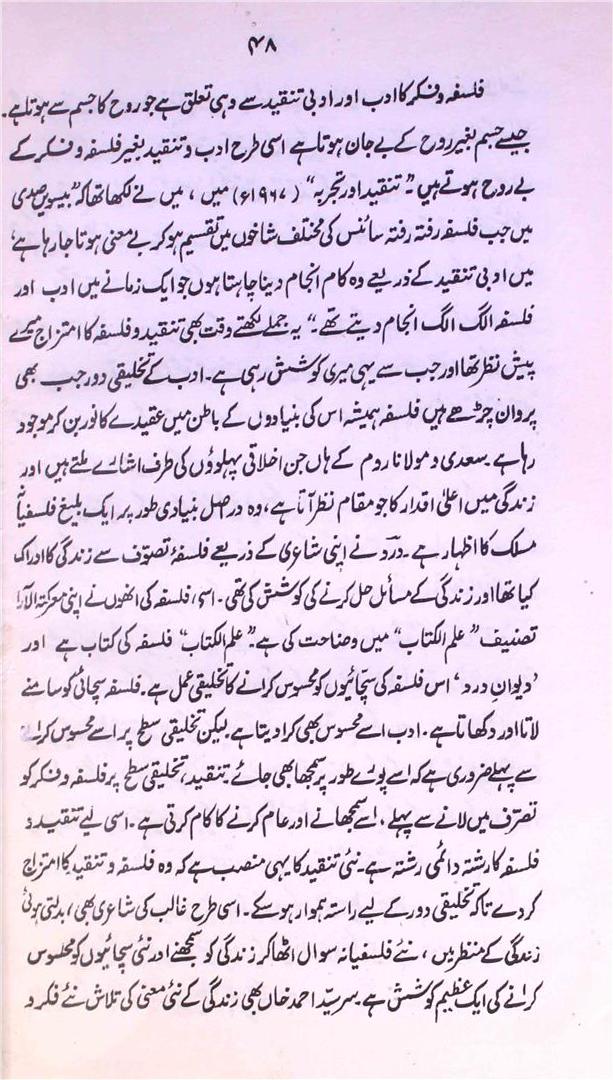 ۴۸
فلسفہ و فکر کا ادب اور ادبی تنقید سے وہی تعلق ہے جو روح کا جسم سے ہوتا ہے۔
جیسے جسم بغیر روح کے بے جان ہوتا ہے اسی طرح ادب و تنقید بغیر فلسفہ و فکر کے
بے روح ہوتے ہیں۔ "تنقید اور تجربہ" (۱۹۶۷ء) میں، میں نے لکھا تھا کہ "بیسویں صدی
میں جب فلسفہ رفتہ رفتہ سائنس کی مختلف شاخوں میں تقسیم ہو کر بے معنی ہوتا جا رہا ہے،
میں ادبی تنقید کے ذریعے وہ کام انجام دینا چاہتا ہوں جو ایک زمانے میں ادب اور
فلسفہ الگ الگ انجام دیتے تھے۔" یہ جملے لکھتے وقت بھی تنقید و فلسفہ کا امتزاج میرے
پیش نظر تھا اور جب سے یہی میری کوشش رہی ہے۔ ادب کے تخلیقی دور جب بھی
پروان چڑھے ہیں فلسفہ ہمیشہ اس کی بنیادوں کے باطن میں عقیدے کا نور بن کر موجود
رہا ہے۔ سعدی و مولانا روم کے ہاں جن اخلاقی پہلوؤں کی طرف اشارے ملتے ہیں اور
زندگی میں اعلیٰ اقدار کا جو مقام نظر آتا ہے، وہ دراصل بنیادی طور پر ایک بلیغ فلسفیانہ
مسلک کا اظہار ہے۔ درد نے اپنی شاعری کے ذریعے فلسفۂ تصوّف سے زندگی کا ادراک
کیا تھا اور زندگی کے مسائل حل کرنے کی کوشش کی تھی۔ اسی فلسفہ کی انھوں نے اپنی معرکۃ الآرا
تصنیف "علم الکتاب" میں وضاحت کی ہے۔ "علم الکتاب" فلسفہ کی کتاب ہے اور
'دیوانِ درد' اس فلسفہ کی سچائیوں کو محسوس کرانے کا تخلیقی عمل ہے۔ فلسفہ سچائی کو سامنے
لاتا اور دکھاتا ہے۔ ادب اسے محسوس بھی کرا دیتا ہے لیکن تخلیقی سطح پر اسے محسوس کرانے
سے پہلے ضروری ہے کہ اسے پورے طور پر سمجھا بھی جائے۔ تنقید، تخلیقی سطح پر فلسفہ و فکر کو
تصرّف میں لانے سے پہلے، اسے سمجھانے اور عام کرنے کا کام کرتی ہے۔ اسی لیے تنقید و
فلسفہ کا رشتہ دائمی رشتہ ہے۔ نئی تنقید کا یہی منصب ہے کہ وہ فلسفہ و تنقید کا امتزاج
کر دے تاکہ تخلیقی دور کے لیے راستہ ہموار ہو سکے۔ اسی طرح غالب کی شاعری بھی، بدلتی ہوئی
زندگی کے منظر میں، نئے فلسفیانہ سوال اٹھا کر زندگی کو سمجھنے اور نئی سچائیوں کو محسوس
کرانے کی ایک عظیم کوشش ہے۔ سرسیّد احمد خاں بھی زندگی کے نئے معنی کی تلاش نئے فکر و